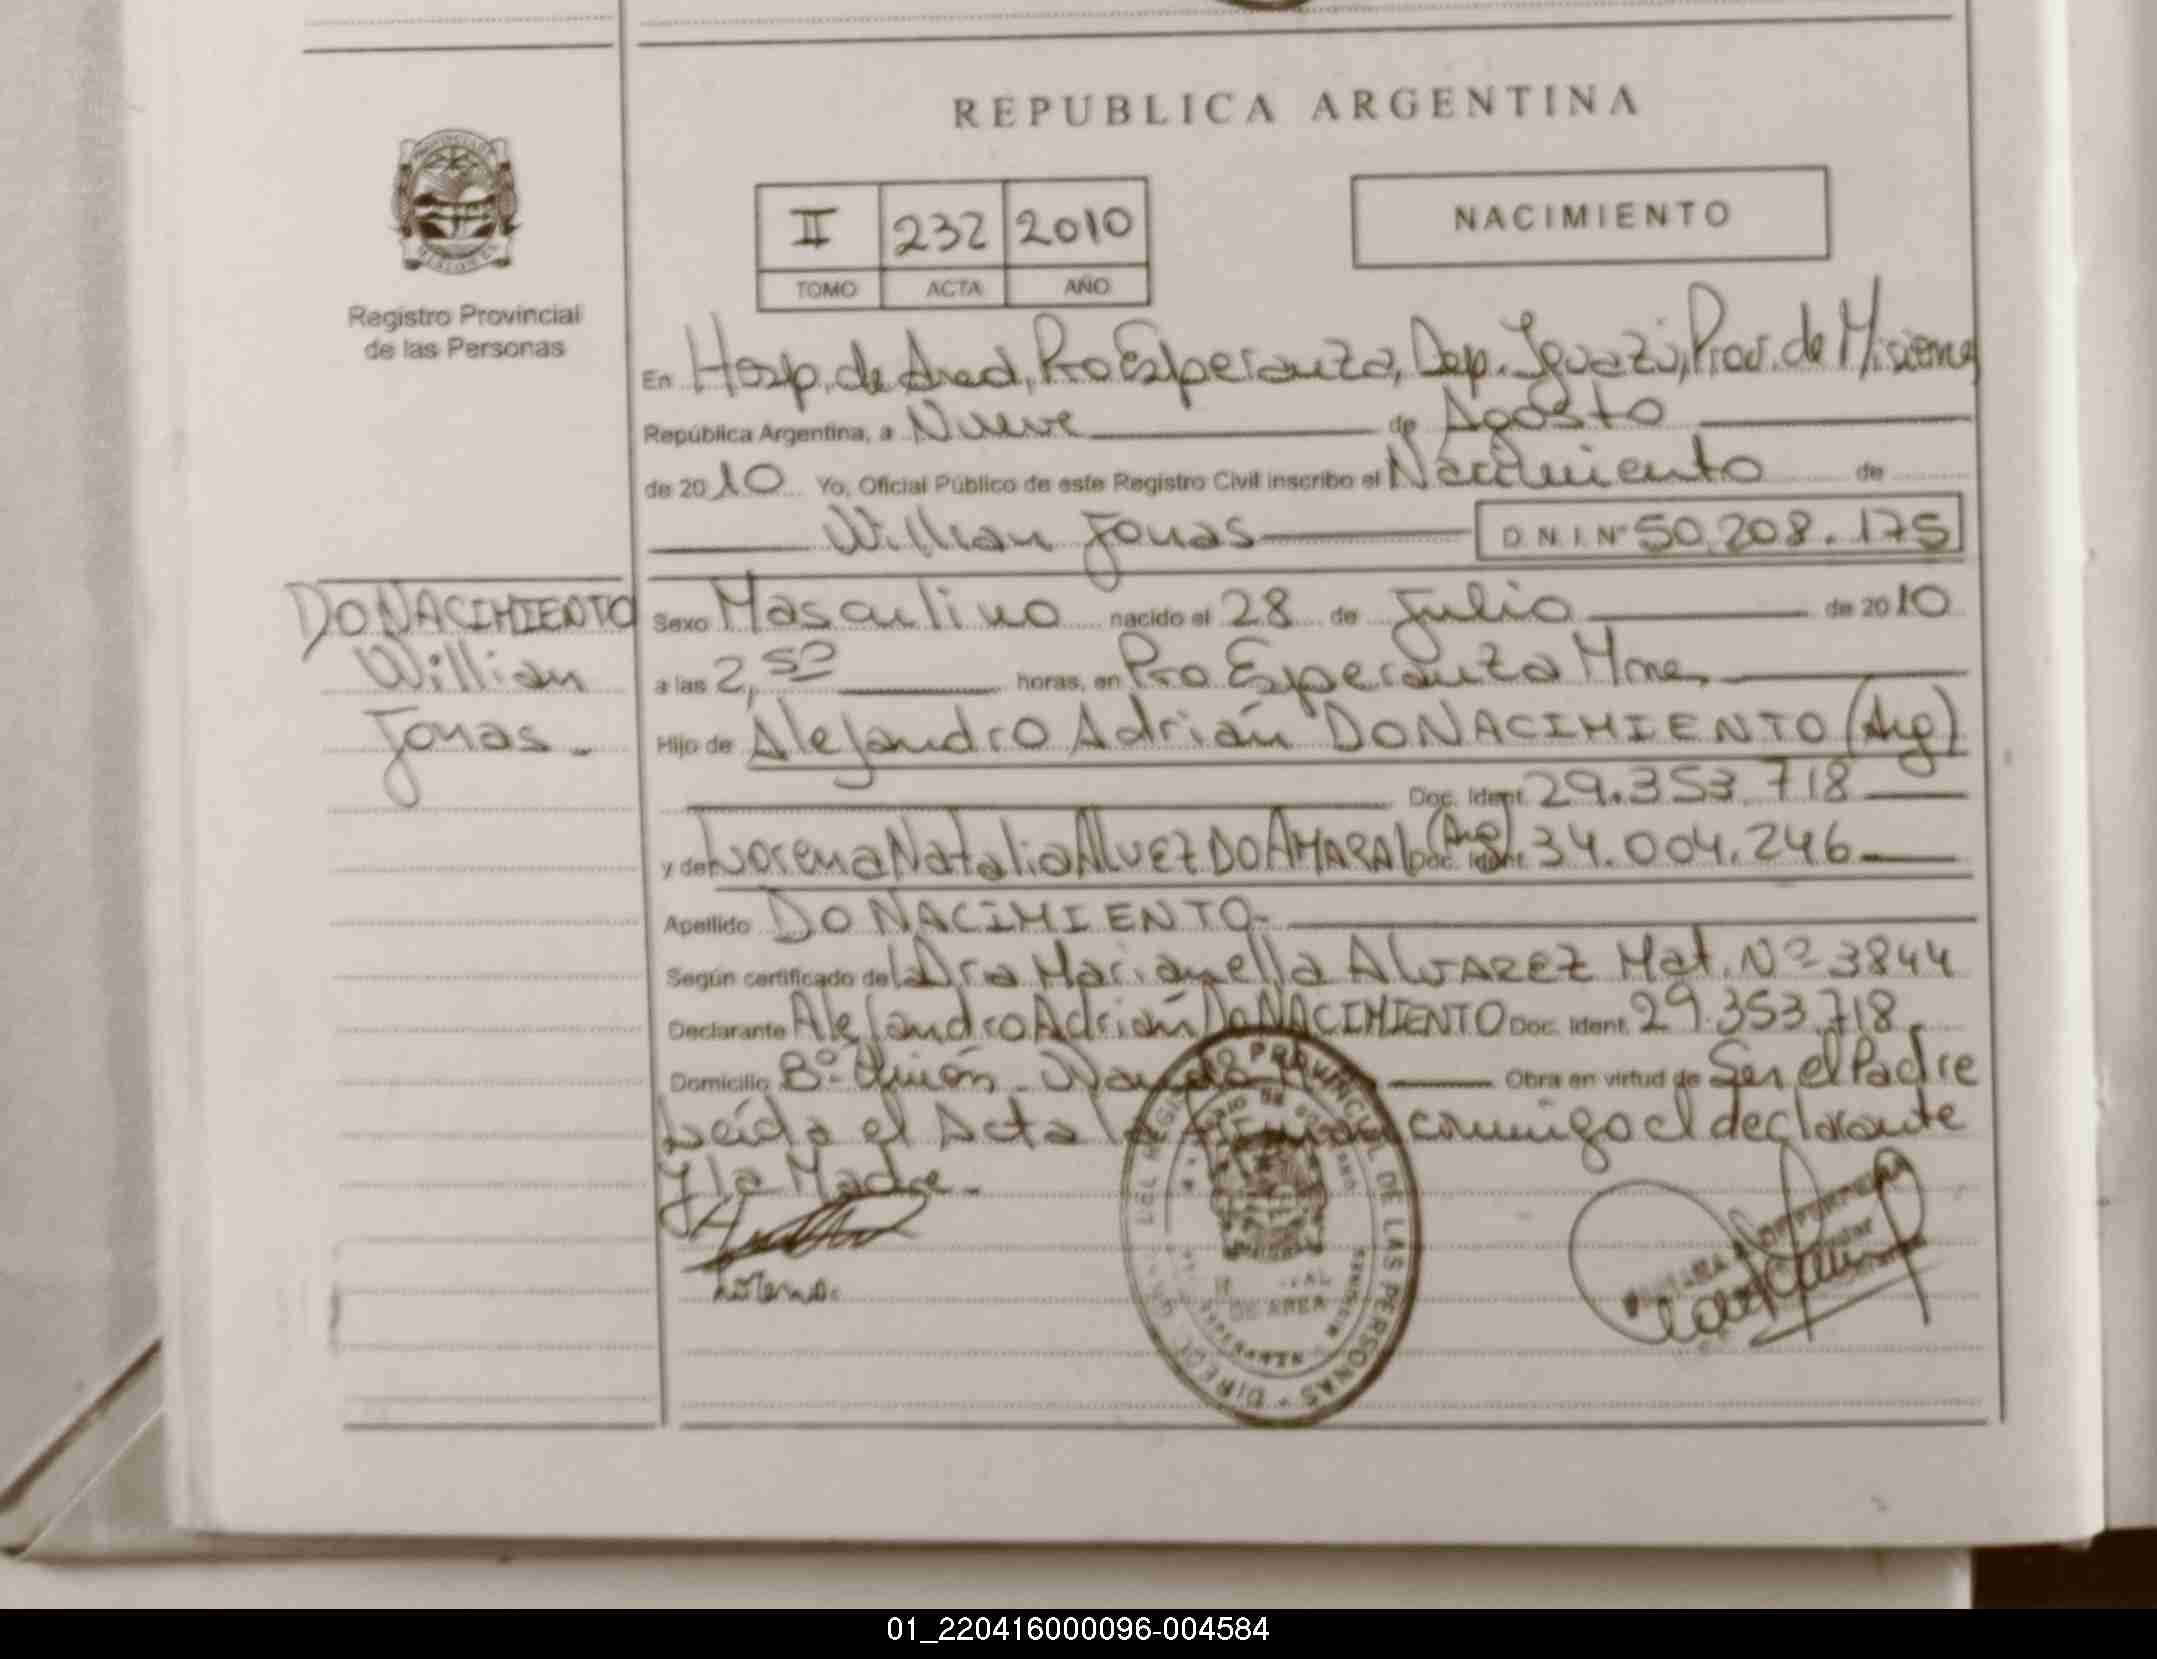 REPUBLICA ARGENTINA
Registro Provincial
de las Personas
II 232 2010
TOMO ACTA AÑO
NACIMIENTO
En Hosp. de Area, Pto Esperanza, Dep. Iguazú, Prov. de Misiones
República Argentina, a Nueve de Agosto
de 2010 Yo, Oficial Público de este Registro Civil inscribo el Nacimiento de
Willian Jonas D.N.I. Nº 50.208.175
DO NACIMIENTO
Willian
Jonas.-
Sexo Masculino nacido el 28 de Julio de 2010
a las 2,50 horas, en Pto Esperanza Mnes,
Hijo de Alejandro Adrián DO NACIMIENTO (Arg)
Doc. Ident. 29.353.718
y de Lorena Natalia Alvez DO AMARAL (Arg) Doc. Ident. 34.004.246
Apellido DO NACIMIENTO.-
Según certificado de la Dra Marianella ALVAREZ Mat. Nº 3844
Declarante Alejandro Adrián DO NACIMIENTO Doc. Ident. 29.353.718
Domicilio Bº Unión - Wanda Obra en virtud de Ser el Padre
Leída el Acta la conmigo el declarante
y la Madre.-
DE LAS PERSONAS
DE AREA
01_220416000096-004584